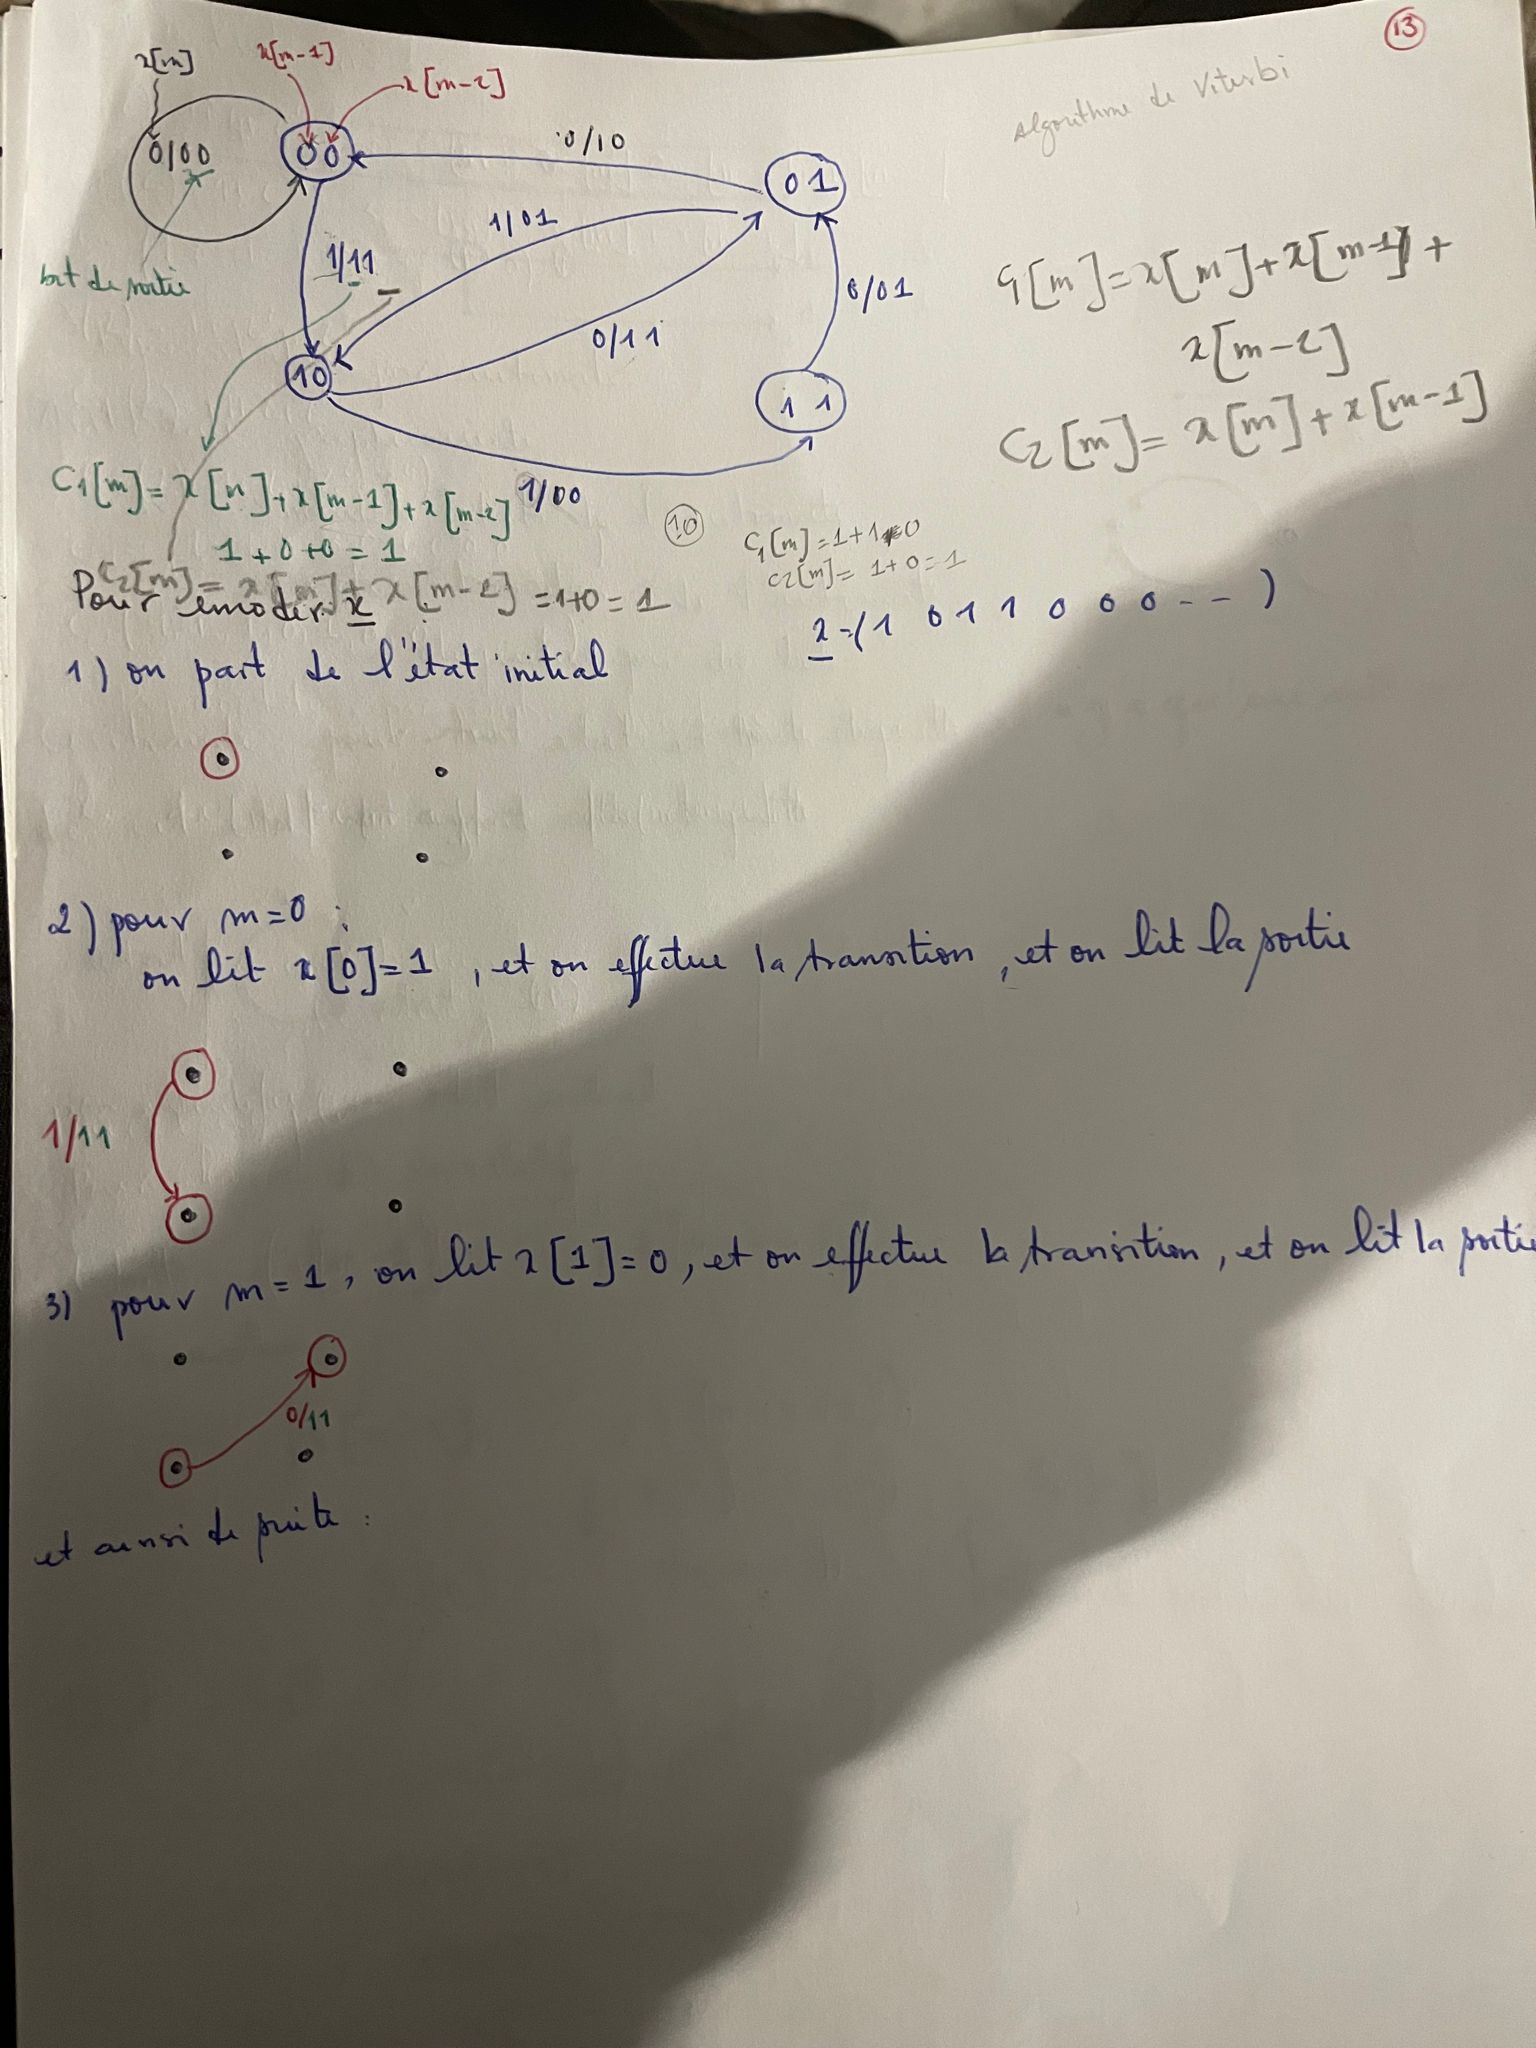 13
x[m] x[m-1] x[m-2]
Algorithme de Viterbi
0/00
00
0/10
01
1/01
bit de sortie
1/11
0/11
0/01
10
11
C1[m]=x[m]+x[m-1]+
x[m-2]
C2[m]=x[m]+x[m-1]
C1[m]=x[n]+x[m-1]+x[m-2]
1/00
1+0+0=1
10
C1[m]=1+1=0
C2[m]=1+0=1
C2[m]=x[m]+x[m-1]=1+0=1
Pour émoder x
x=(1 0 1 1 0 0 0 -- )
1) on part de l'état initial
2) pour m=0 :
on lit x[0]=1, et on effectue la transition, et on lit la sortie
1/11
3) pour m=1, on lit x[1]=0, et on effectue la transition, et on lit la sortie
0/11
et ainsi de suite.